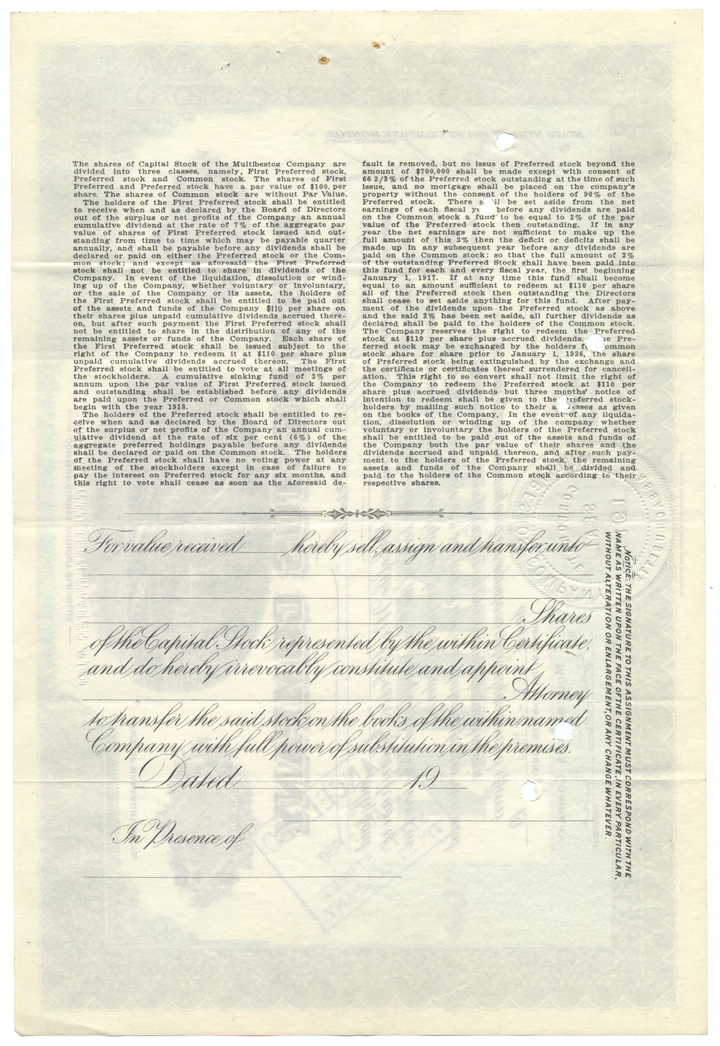 The shares of Capital Stock of the Multibestos Company are
divided into three classes, namely, First Preferred stock,
Preferred stock and Common stock. The shares of First
Preferred and Preferred stock have a par value of $100, per
share. The shares of Common stock are without Par Value.
The holders of the First Preferred stock shall be entitled
to receive when and as declared by the Board of Directors
out of the surplus or net profits of the Company an annual
cumulative dividend at the rate of 7% of the aggregate par
value of shares of First Preferred stock issued and out-
standing from time to time which may be payable quarter
annually, and shall be payable before any dividends shall be
declared or paid on either the Preferred stock or the Com-
mon stock; and except as aforesaid the First Preferred
stock shall not be entitled to share in dividends of the
Company. In event of the liquidation, dissolution or wind-
ing up of the Company, whether voluntary or involuntary,
or the sale of the Company or its assets, the holders of
the First Preferred stock shall be entitled to be paid out
of the assets and funds of the Company $110 per share on
their shares plus unpaid cumulative dividends accrued there-
on, but after such payment the First Preferred stock shall
not be entitled to share in the distribution of any of the
remaining assets or funds of the Company. Each share of
the First Preferred stock shall be issued subject to the
right of the Company to redeem it at $110 per share plus
unpaid cumulative dividends accrued thereon. The First
Preferred stock shall be entitled to vote at all meetings of
the stockholders. A cumulative sinking fund of 3% per
annum upon the par value of First Preferred stock issued
and outstanding shall be established before any dividends
are paid upon the Preferred or Common stock which shall
begin with the year 1918.
The holders of the Preferred stock shall be entitled to re-
ceive when and as declared by the Board of Directors out
of the surplus or net profits of the Company an annual cum-
ulative dividend at the rate of six per cent (6%) of the
aggregate preferred holdings payable before any dividends
shall be declared or paid on the Common stock. The holders
of the Preferred stock shall have no voting power at any
meeting of the stockholders except in case of failure to
pay the interest on Preferred stock for any six months, and
this right to vote shall cease as soon as the aforesaid de-
fault is removed, but no issue of Preferred stock beyond the
amount of $700,000 shall be made except with consent of
66 2/3% of the Preferred stock outstanding at the time of such
issue, and no mortgage shall be placed on the company's
property without the consent of the holders of 90% of the
Preferred stock. There shall be set aside from the net
earnings of each fiscal ye before any dividends are paid
on the Common stock a fund to be equal to 2% of the par
value of the Preferred stock then outstanding. If in any
year the net earnings are not sufficient to make up the
full amount of this 2% then the deficit or deficits shall be
made up in any subsequent year before any dividends are
paid on the Common stock: so that the full amount of 2%
of the outstanding Preferred Stock shall have been paid into
this fund for each and every fiscal year, the first beginning
January 1, 1917. If at any time this fund shall become
equal to an amount sufficient to redeem at $110 per share
all of the Preferred stock then outstanding the Directors
shall cease to set aside anything for this fund. After pay-
ment of the dividends upon the Preferred stock as above
and the said 2% has been set aside, all further dividends as
declared shall be paid to the holders of the Common stock.
The Company reserves the right to redeem the Preferred
stock at $110 per share plus accrued dividends. The Pre-
ferred stock may be exchanged by the holders for common
stock share for share prior to January 1, 1926, the share
of Preferred stock being extinguished by the exchange and
the certificate or certificates thereof surrendered for cancell-
ation. This right so to convert shall not limit the right of
the Company to redeem the Preferred stock at $110 per
share plus accrued dividends but three months' notice of
intention to redeem shall be given to the Preferred stock-
holders by mailing such notice to their addresses as given
on the books of the Company. In the event of any liquida-
tion, dissolution or winding up of the company whether
voluntary or involuntary the holders of the Preferred stock
shall be entitled to be paid out of the assets and funds of
the Company both the par value of their shares and the
dividends accrued and unpaid thereon, and after such pay-
ment to the holders of the Preferred stock, the remaining
assets and funds of the Company shall be divided and
paid to the holders of the Common stock according to their
respective shares.
For value received hereby sell, assign and transfer unto
Shares
of the Capital Stock represented by the within Certificate,
and do hereby irrevocably constitute and appoint
Attorney
to transfer the said stock on the books of the within named
Company with full power of substitution in the premises.
Dated 19
In Presence of
NOTICE: THE SIGNATURE TO THIS ASSIGNMENT MUST CORRESPOND WITH THE
NAME AS WRITTEN UPON THE FACE OF THE CERTIFICATE, IN EVERY PARTICULAR,
WITHOUT ALTERATION OR ENLARGEMENT, OR ANY CHANGE WHATEVER.